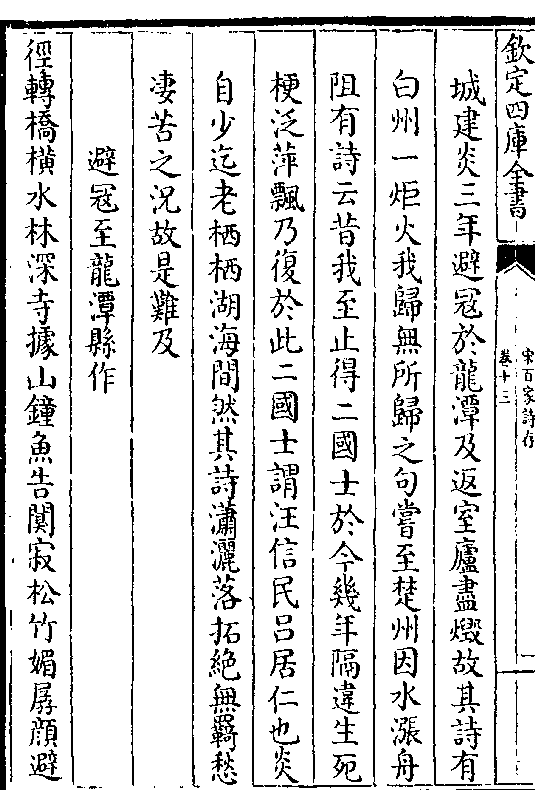 欽定四庫全書
宋百家詩存
卷十三
二
城建炎三年避冦於龍潭及返室廬盡燬故其詩有
白州一炬火我歸無所歸之句嘗至楚州因水漲舟
阻有詩云昔我至止得二國士於今幾年隔違生死
梗泛萍飄乃復於此二國士謂汪信民吕居仁也炎
自少迄老栖栖湖海間然其詩瀟灑落拓絶無羇愁
凄苦之况故是難及
避冦至龍潭縣作
徑轉橋横水林深寺據山鐘魚告闃寂松竹媚孱顔避